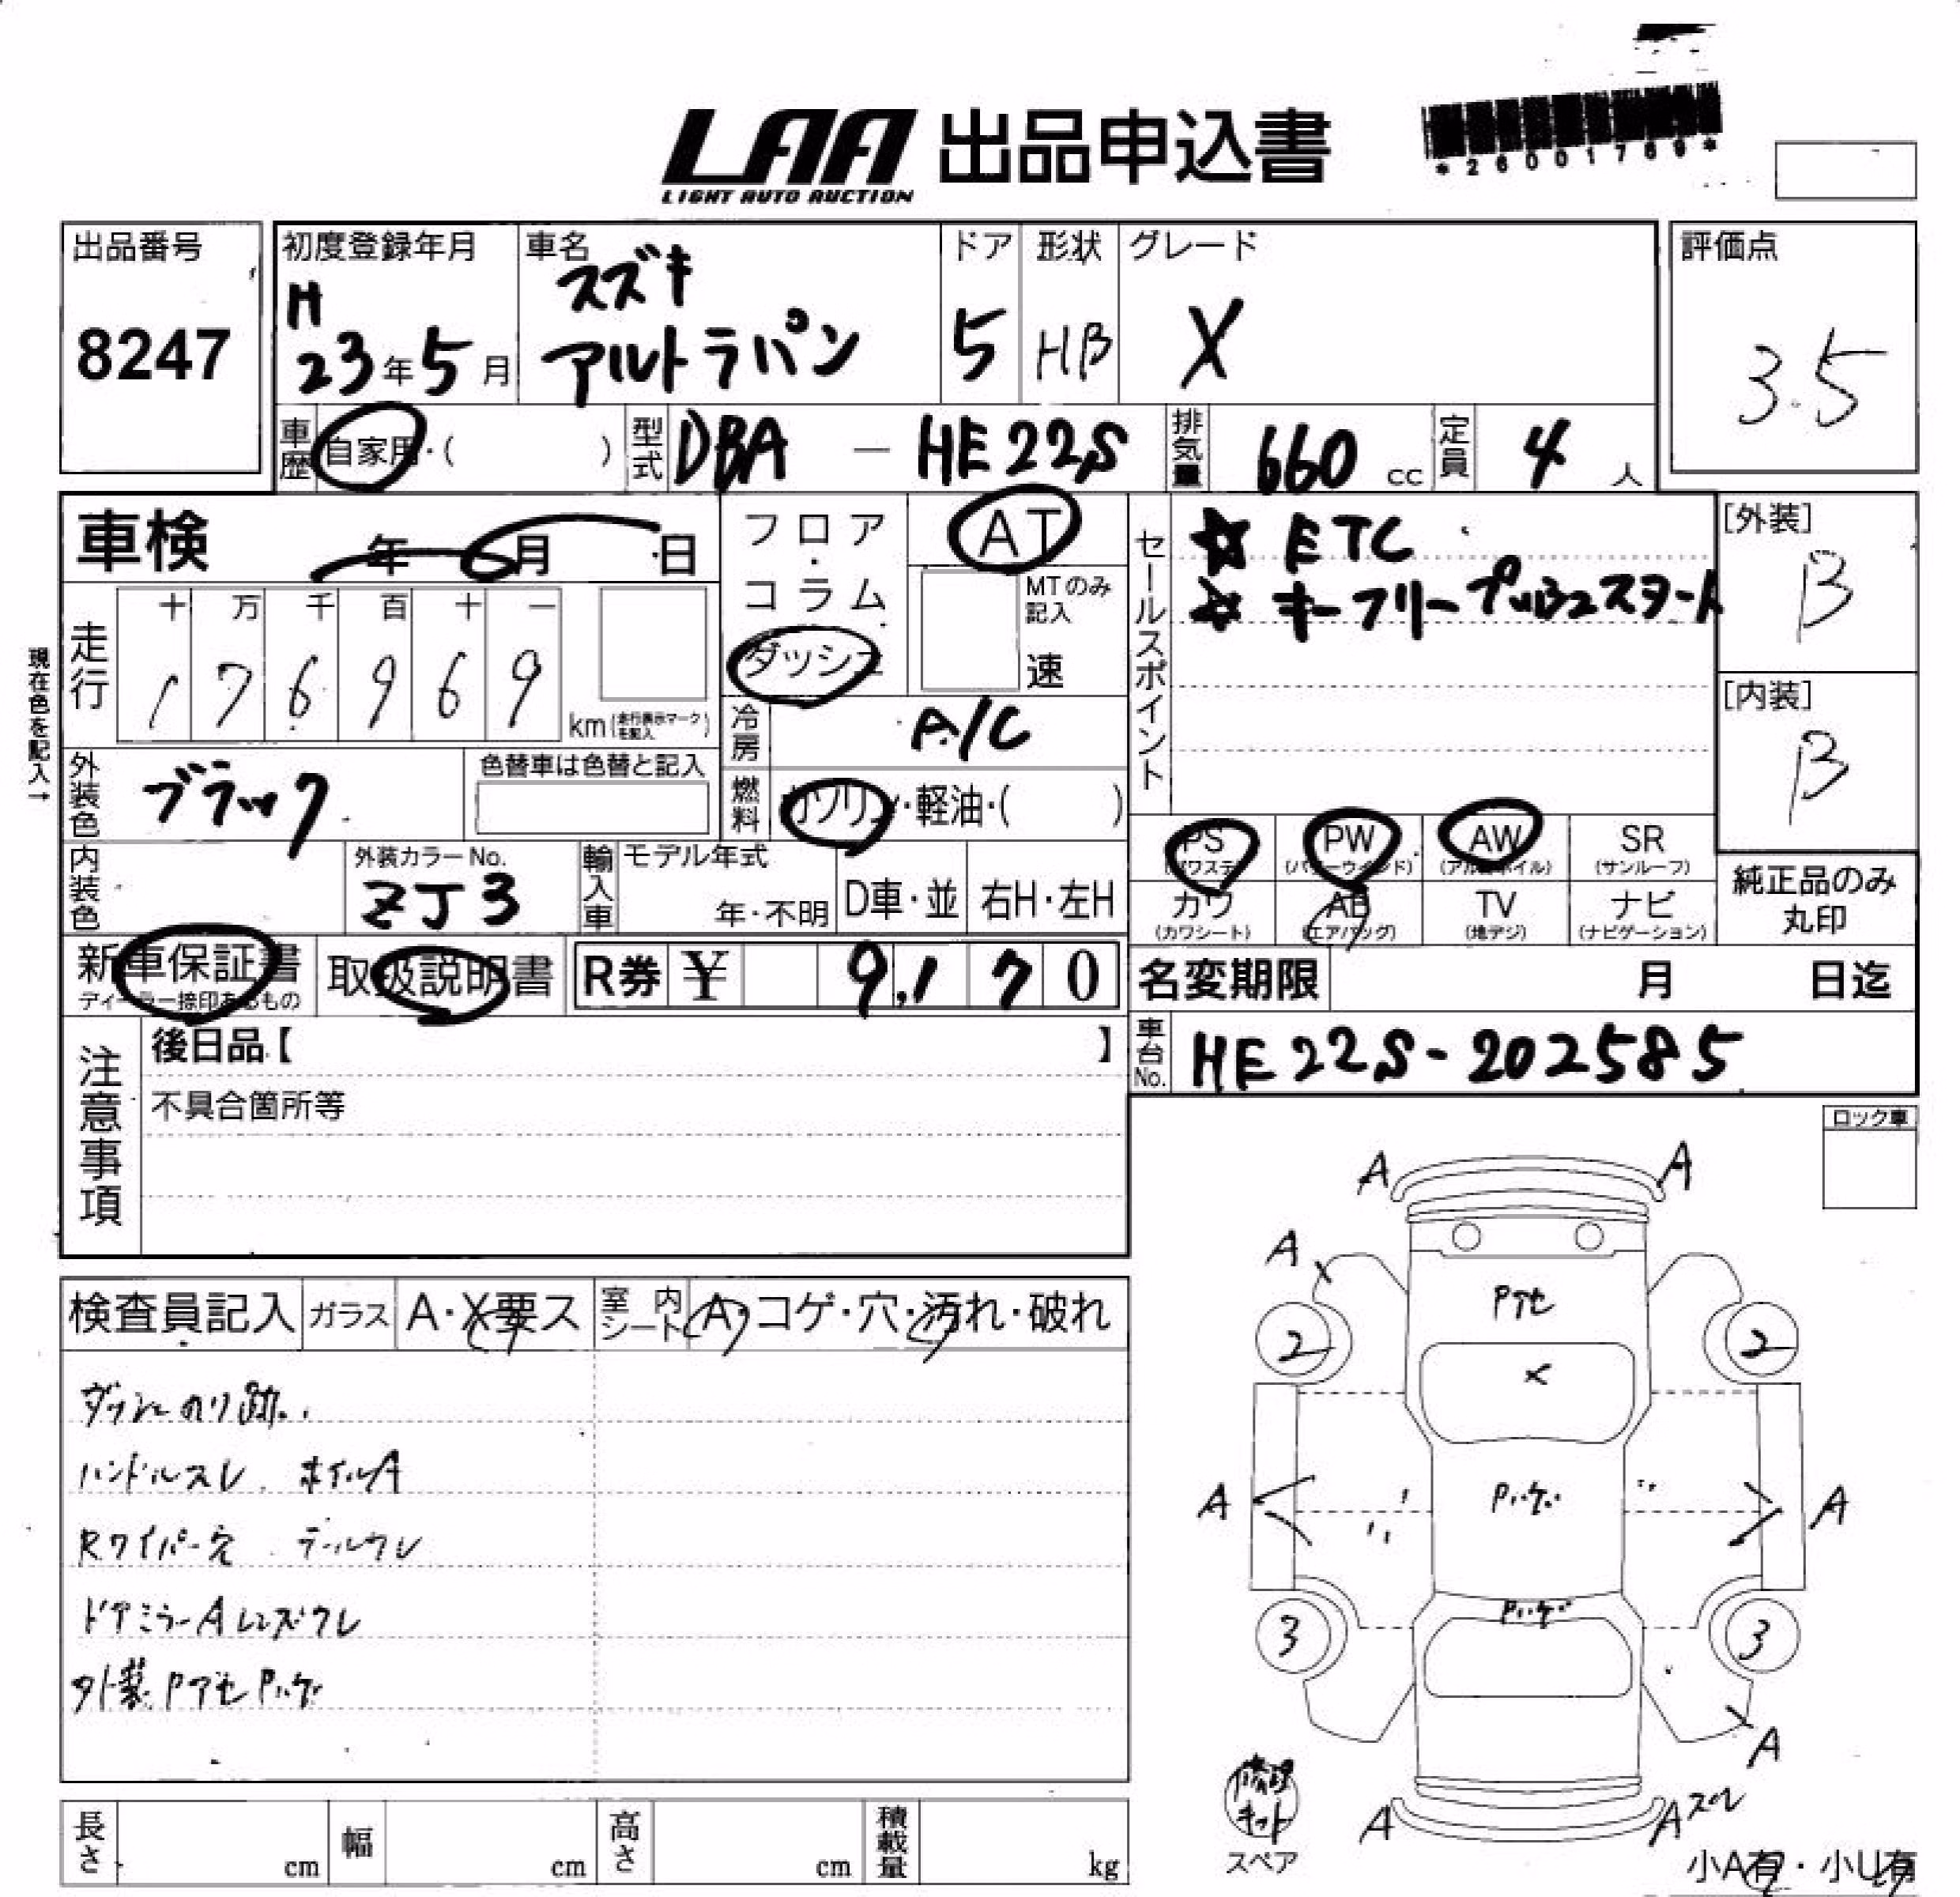 LAA 出品申込書
LIGHT AUTO AUCTION
*26001769*
出品番号
8247
初度登録年月
H
23年5月
車名
スズキ
アルトラパン
ドア
5
形状
HB
グレード
X
評価点
3.5
車歴
自家用・( )
型式
DBA - HE22S
排気量
660 cc
定員
4 人
車検
年 月 日
フロア・コラム
ダッシュ
AT
MTのみ記入
速
セールスポイント
☆ ETC
☆ キーフリープッシュスタート
[外装]
B
[内装]
B
現在色を記入→
走行
十 万 千 百 十 一
1 7 6 9 6 9
km(走行表示マークを記入)
冷房
A/C
外装色
ブラック
色替車は色替と記入
燃料
ガソリン・軽油・( )
PS
(パワステ)
PW
(パワーウインド)
AW
(アルミホイル)
SR
(サンルーフ)
カワ
(カワシート)
AB
(エアバッグ)
TV
(地デジ)
ナビ
(ナビゲーション)
純正品のみ
丸印
内装色
外装カラーNo.
ZJ3
輸入車
モデル年式
年・不明
D車・並
右H・左H
新車保証書
ディーラー捺印あるもの
取扱説明書
R券 ¥ 9,170
名変期限
月 日迄
車台No.
HE22S-202585
注意事項
後日品【 】
不具合箇所等
ロック車
検査員記入
ガラス
A・X要ス
室内シート
A・コゲ・穴・汚れ・破れ
ダッシュのり跡
ハンドルスレ ホイルA
Rワイパー穴 テールワレ
ドアミラーA レンズワレ
外装PアセPハゲ
A A
A
Pアセ
2 2
X
A Pハゲ A
Pハゲ
3 3
A
修理キット
スペア
A Aスレ
小A有・小U有
長さ cm
幅 cm
高さ cm
積載量 kg